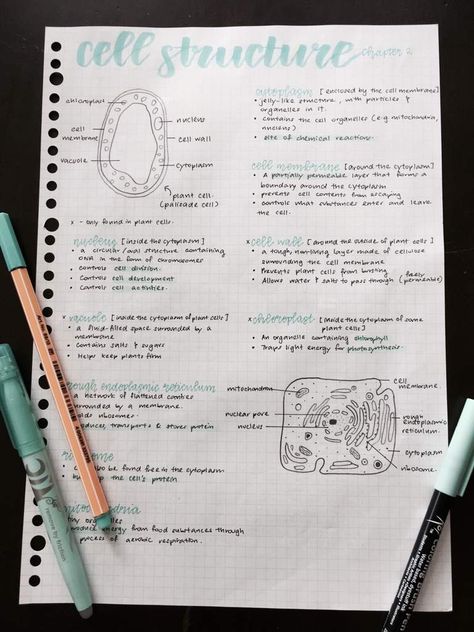 cell structure chapter 2
chloroplast
cell membrane
vacuole
nucleus
cell wall
cytoplasm
plant cell
(palisade cell)
x - only found in plant cells.
nucleus [inside the cytoplasm]
• a circular/oval structure containing
DNA in the form of chromosomes
• controls cell division.
• controls cell development
• controls cell activities.
x vacuole [inside the cytoplasm of plant cells]
• a fluid-filled space surrounded by a
membrane.
• contains salts & sugars
• helps keep plants firm
rough endoplasmic reticulum
a network of flattened cavities
surrounded by a membrane.
ribosomes
transports & stores protein
also be found free in the cytoplasm
the cell's protein.
energy from food substances through
process of aerobic respiration.
cytoplasm [enclosed by the cell membrane]
• jelly-like structure, with particles &
organelles in it.
• contains the cell organelles (e.g. mitochondria,
nucleus)
• site of chemical reactions.
cell membrane [around the cytoplasm]
• A partially permeable layer that forms a
boundary around the cytoplasm
• prevents cell contents from escaping
• controls what substances enter and leave
the cell.
x cell wall [around the outside of plant cells]
• a tough, non-living layer made of cellulose
surrounding the cell membrane
• Prevents plant cells from bursting
• Allows water & salts to pass though (freely
permeable)
x chloroplast [inside the cytoplasm of some
plant cells]
• An organelle containing chlorophyll
• Traps light energy for photosynthesis.
mitochondrion
nuclear pore
nucleus
cell
membrane.
rough
endoplasmic
reticulum.
cytoplasm
ribosome.